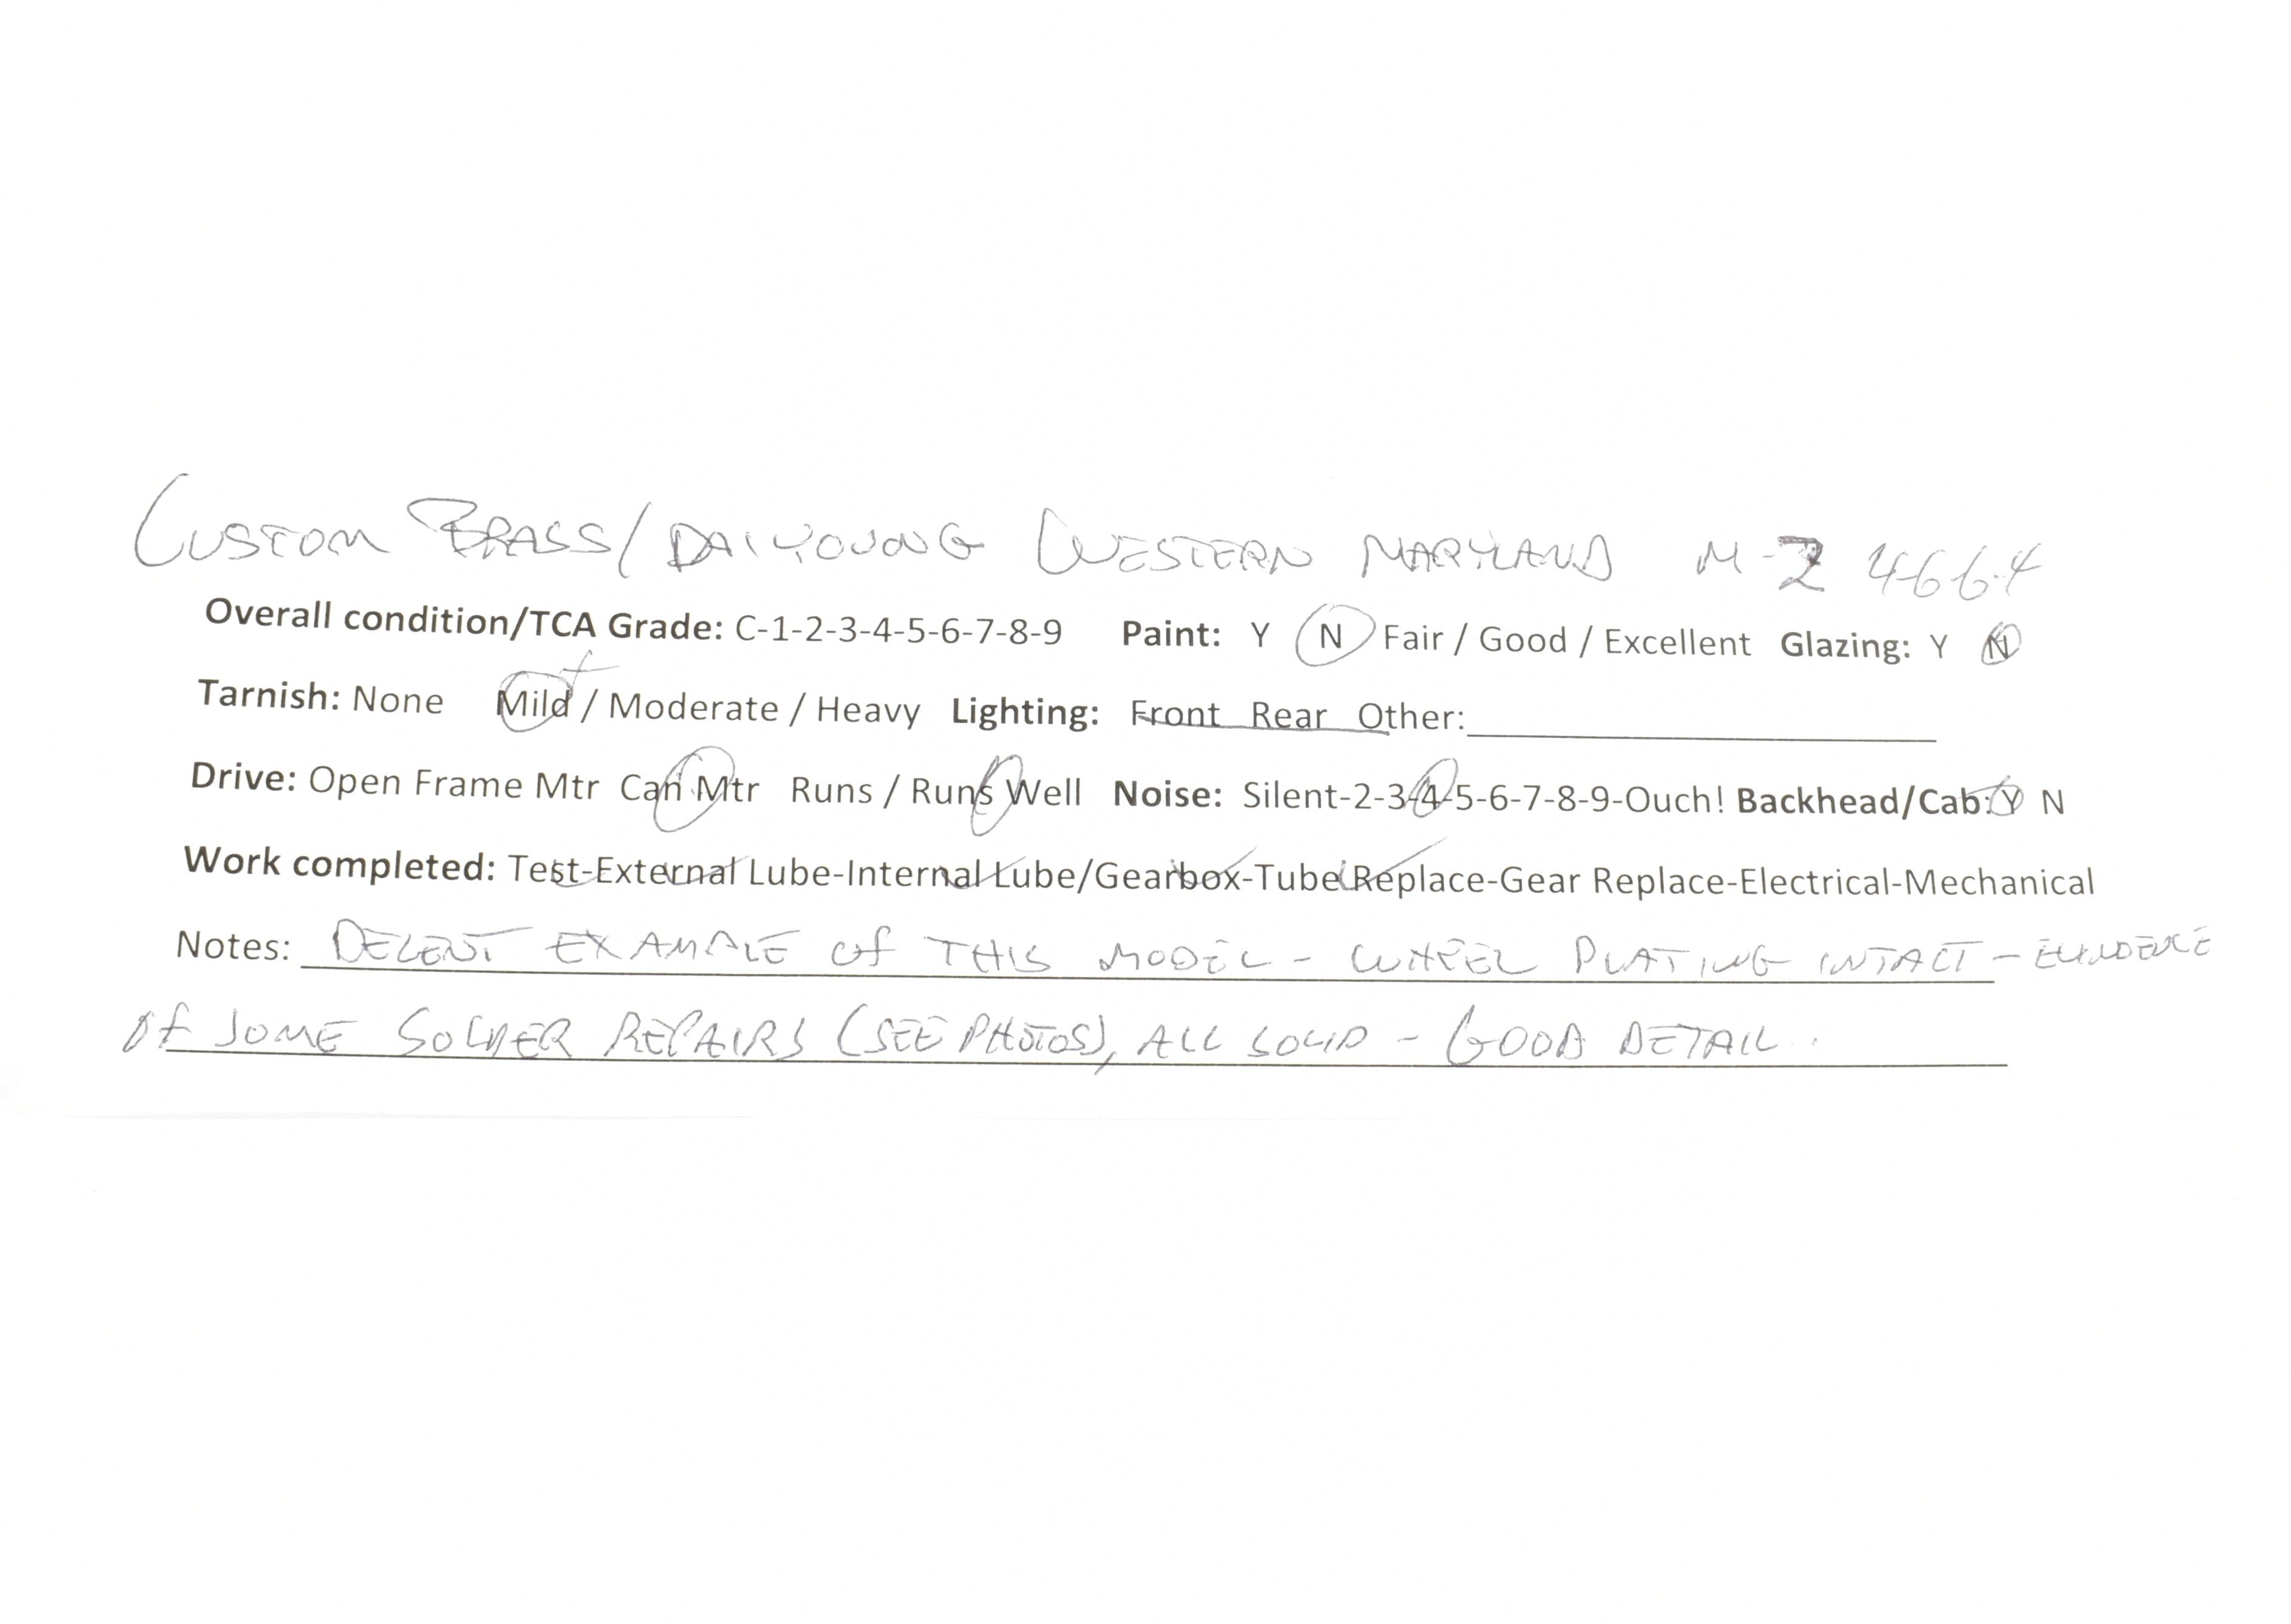 CUSTOM BRASS/DAIYOUNG WESTERN MARYLAND M-2 4-6-6-4
Overall condition/TCA Grade: C-1-2-3-4-5-6-7-8-9 Paint: Y N Fair / Good / Excellent Glazing: Y N
Tarnish: None Mild+ / Moderate / Heavy Lighting: Front Rear Other:
Drive: Open Frame Mtr Can Mtr Runs / Runs Well Noise: Silent-2-3-4-5-6-7-8-9-Ouch! Backhead/Cab: Y N
Work completed: Test-External Lube-Internal Lube/Gearbox-Tube Replace-Gear Replace-Electrical-Mechanical
Notes: DECENT EXAMPLE OF THIS MODEL - WHEEL PLATING INTACT - EVIDENCE
OF SOME SOLDER REPAIRS (SEE PHOTOS), ALL SOLID - GOOD DETAIL.